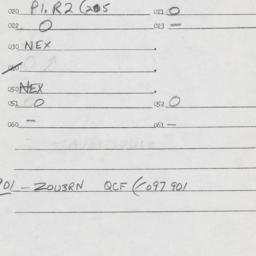 020 P1. R2 (205 021 0
022 0 023 —
030 NEX
050 NEX
051 0 052 0
060 — 061 —
901 – ZOU3RN QCF (097 901